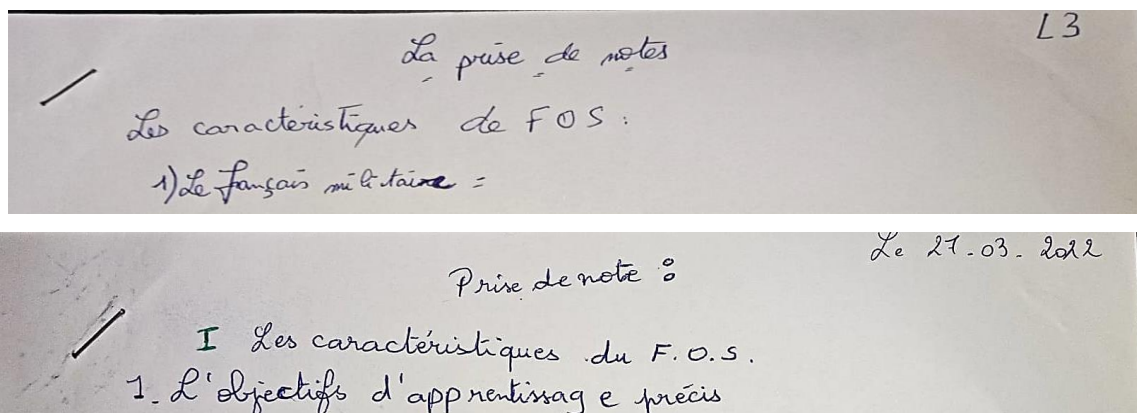 L3
La prise de notes
Les caractéristiques de FOS :
1) Le français militaire =
Le 21.03.2022
Prise de note :
I Les caractéristiques du F.O.S.
1. L'objectifs d'apprentissage précis